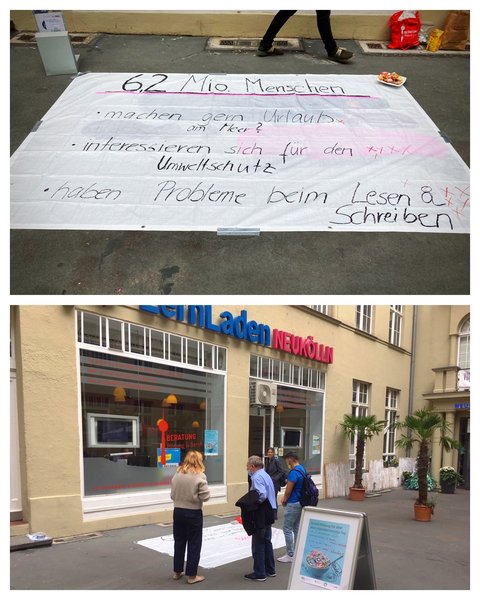 6,2 Mio. Menschen
• machen gern Urlaub
am Meer?
• interessieren sich für den
Umweltschutz
• haben Probleme beim Lesen &
Schreiben
LernLaden NEUKÖLLN
BERATUNG